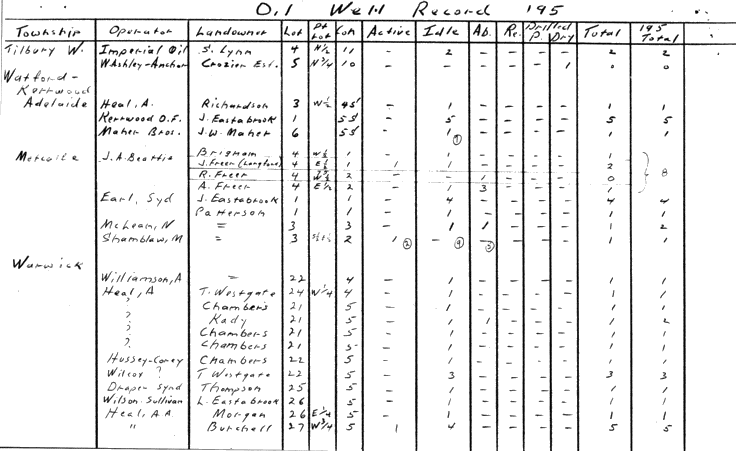 Oil Well Record 195
Township Operator Landowner Lot Pt Lot Con Active Idle Ab. Re. Drilled P. Dry Total 195 Total
Tilbury W. Imperial Oil S. Lynn 4 N½ 11 - 2 - - - - 2 2
WAshley-Anchor Crozier Est. 5 N¾ 10 - - - - - 1 0 0
Watford-
Kerrwood
Adelaide Heal, A. Richardson 3 W½ - 1 - - - - 1 1
Kerrwood O.F. J. Eastabrook 1 - 5 - - - - 5 5
Maher Bros. J.W. Maher 6 - 1 - - - - 1 1
Metcalfe J.A. Beattie Brigham 4 1 - 1 - - - - 1
J. Freer (Langford) 4 E½ 1 1 1 - - - - 2 8
R. Freer 4 2 - - 1 - - - 0
A. Freer 4 E½ 2 - 1 3 - - - 1
Earl, Syd J. Eastabrook 1 1 - 4 - - - - 4 4
Patterson 1 1 - 1 - - - - 1 1
McLean, N = 3 3 - 1 1 - - - 1 2
Shamblaw, M = 3 2 1 - - - - - 1 1
Warwick
Williamson, A = 22 4 - 1 - - - - 1 1
Heal, A T. Westgate 24 W¼ 4 - 1 - - - - 1 1
? Chambers 21 5 - 1 - - - - 1 1
? Kady 21 5 - 1 1 - - - 1 2
? Chambers 21 5 - 1 - - - - 1 1
? Chambers 21 5 - 1 - - - - 1 1
Hussey-Corey Chambers 22 5 - 1 - - - - 1 1
Wilcox ? T Westgate 22 5 - 3 - - - - 3 3
Draper Synd Thompson 25 5 - 1 - - - - 1 1
Wilson-Sullivan L. Eastabrook 26 5 - 1 - - - - 1 1
Heal, A.A Morgan 26 E¼ 5 - 1 - - - - 1 1
" Burchell 27 W¾ 5 1 4 - - - - 5 5